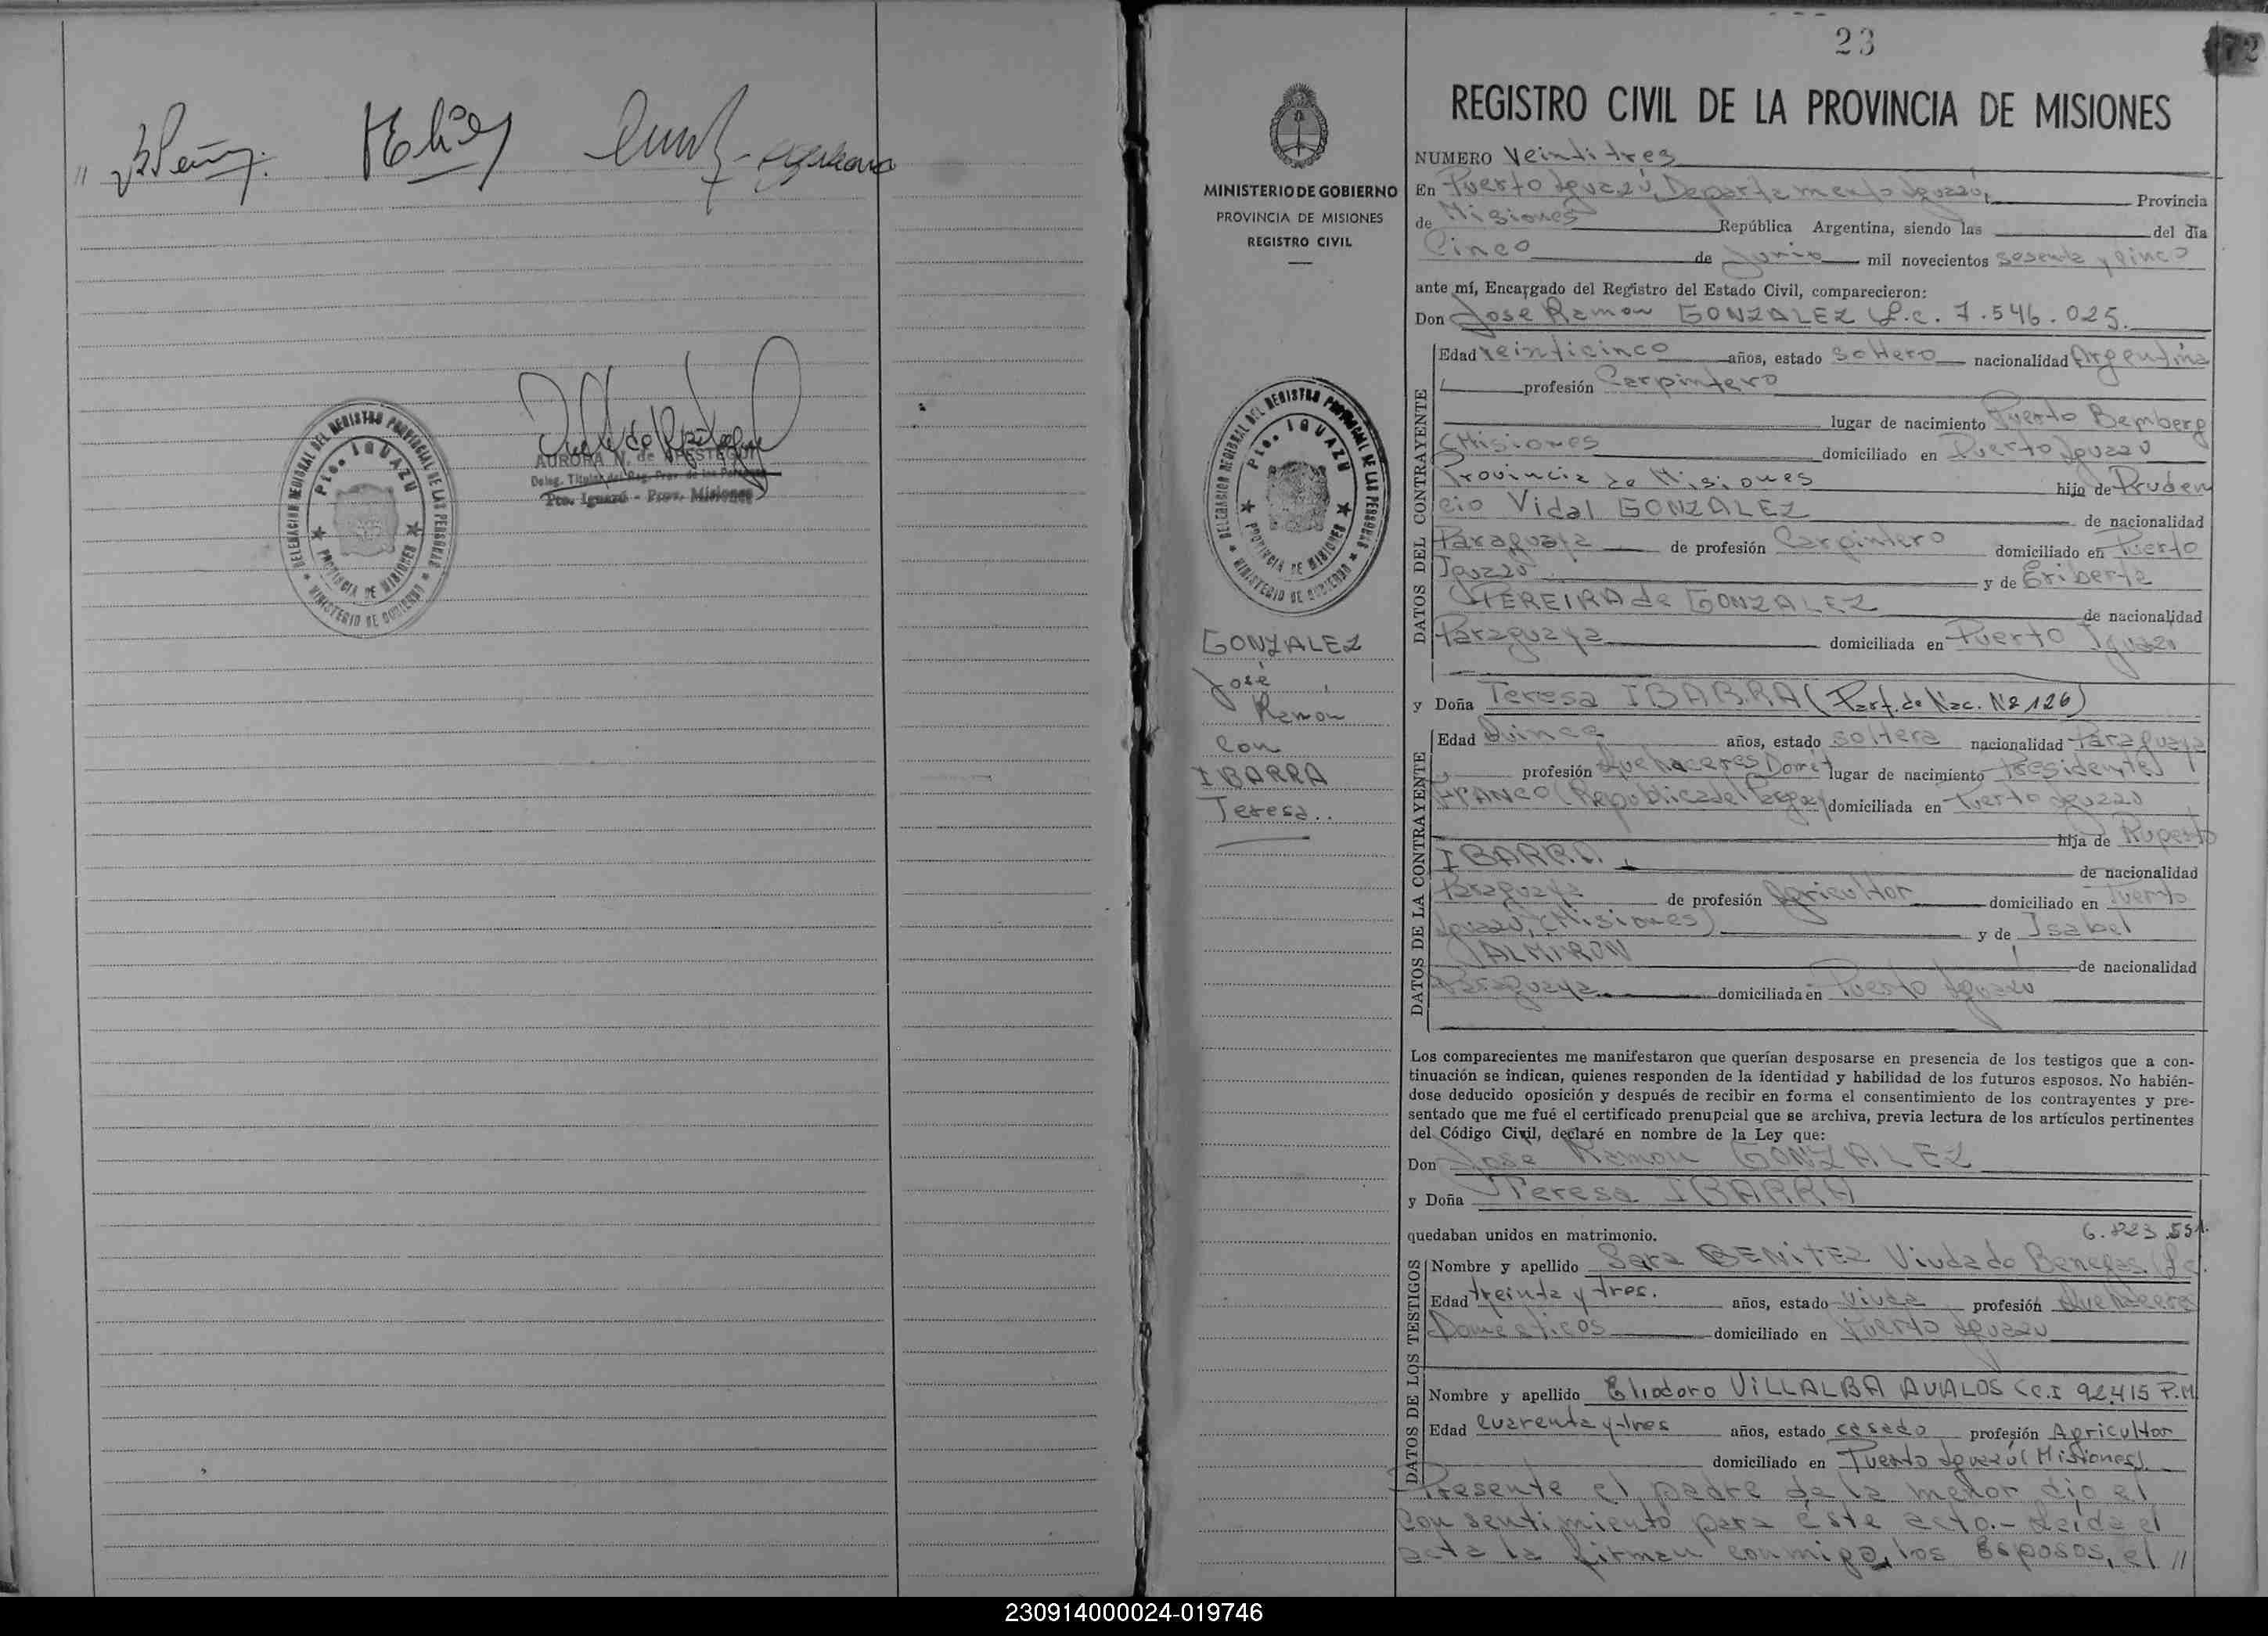 AURORA N. de
Deleg. Titular del Reg. Prov. de las Personas
Pto. Iguazú - Prov. Misiones
DELEGACION REGIONAL DEL REGISTRO PROVINCIAL DE LAS PERSONAS
Pto. IGUAZU
PROVINCIA DE MISIONES
MINISTERIO DE GOBIERNO
23
72
REGISTRO CIVIL DE LA PROVINCIA DE MISIONES
MINISTERIO DE GOBIERNO
PROVINCIA DE MISIONES
REGISTRO CIVIL
DELEGACION REGIONAL DEL REGISTRO PROVINCIAL DE LAS PERSONAS
Pto. IGUAZU
PROVINCIA DE MISIONES
MINISTERIO DE GOBIERNO
GONZALEZ
José
Ramon
con
IBARRA
Teresa..
NUMERO Veintitres
En Puerto Iguazú, Departamento Iguazú, Provincia
de Misiones República Argentina, siendo las del día
Cinco de Junio mil novecientos sesenta y cinco
ante mí, Encargado del Registro del Estado Civil, comparecieron:
Don Jose Ramon GONZALEZ L.c. 7.546.025.
DATOS DEL CONTRAYENTE
Edad veinticinco años, estado soltero nacionalidad Argentina
profesión Carpintero
lugar de nacimiento Puerto Bemberg
(Misiones domiciliado en Puerto Iguazu
Provincia de Misiones hijo de Pruden
cio Vidal GONZALEZ de nacionalidad
Paraguaya de profesión Carpintero domiciliado en Puerto
Iguazu y de Eriberta
PEREIRA de GONZALEZ de nacionalidad
Paraguaya domiciliada en Puerto Iguazu
y Doña Teresa IBARRA (Part. de Nac. Nº 126)
DATOS DE LA CONTRAYENTE
Edad Quince años, estado soltera nacionalidad Paraguaya
profesión Quehaceres Domet lugar de nacimiento Presidente
FRANCO (Republica del domiciliada en Puerto Iguazu
hija de Ruperto
IBARRA de nacionalidad
Paraguaya de profesión Agricultor domiciliado en Puerto
Iguazú, (Misiones) y de Isabel
ALMIRON de nacionalidad
Paraguaya domiciliada en Puerto Iguazu
Los comparecientes me manifestaron que querían desposarse en presencia de los testigos que a con-
tinuación se indican, quienes responden de la identidad y habilidad de los futuros esposos. No habién-
dose deducido oposición y después de recibir en forma el consentimiento de los contrayentes y pre-
sentado que me fué el certificado prenupcial que se archiva, previa lectura de los artículos pertinentes
del Código Civil, declaré en nombre de la Ley que:
Don Jose Ramon GONZALEZ
y Doña Teresa IBARRA
quedaban unidos en matrimonio.
DATOS DE LOS TESTIGOS
Nombre y apellido Sara BENITEZ Viuda de Benegas. Lc.
Edad treinta y tres. años, estado viuda profesión Quehacere
Domesticos domiciliado en Puerto Iguazu
Nombre y apellido Eliodoro VILLALBA AVALOS C.I 92.415 P.M
Edad Cuarenta y tres años, estado casado profesión Agricultor
domiciliado en Puerto Iguazú (Misiones).
Presente el padre de la menor dio el
consentimiento para éste acto.- Leida el
acta la firman conmigo, los Esposos, el //
230914000024-019746